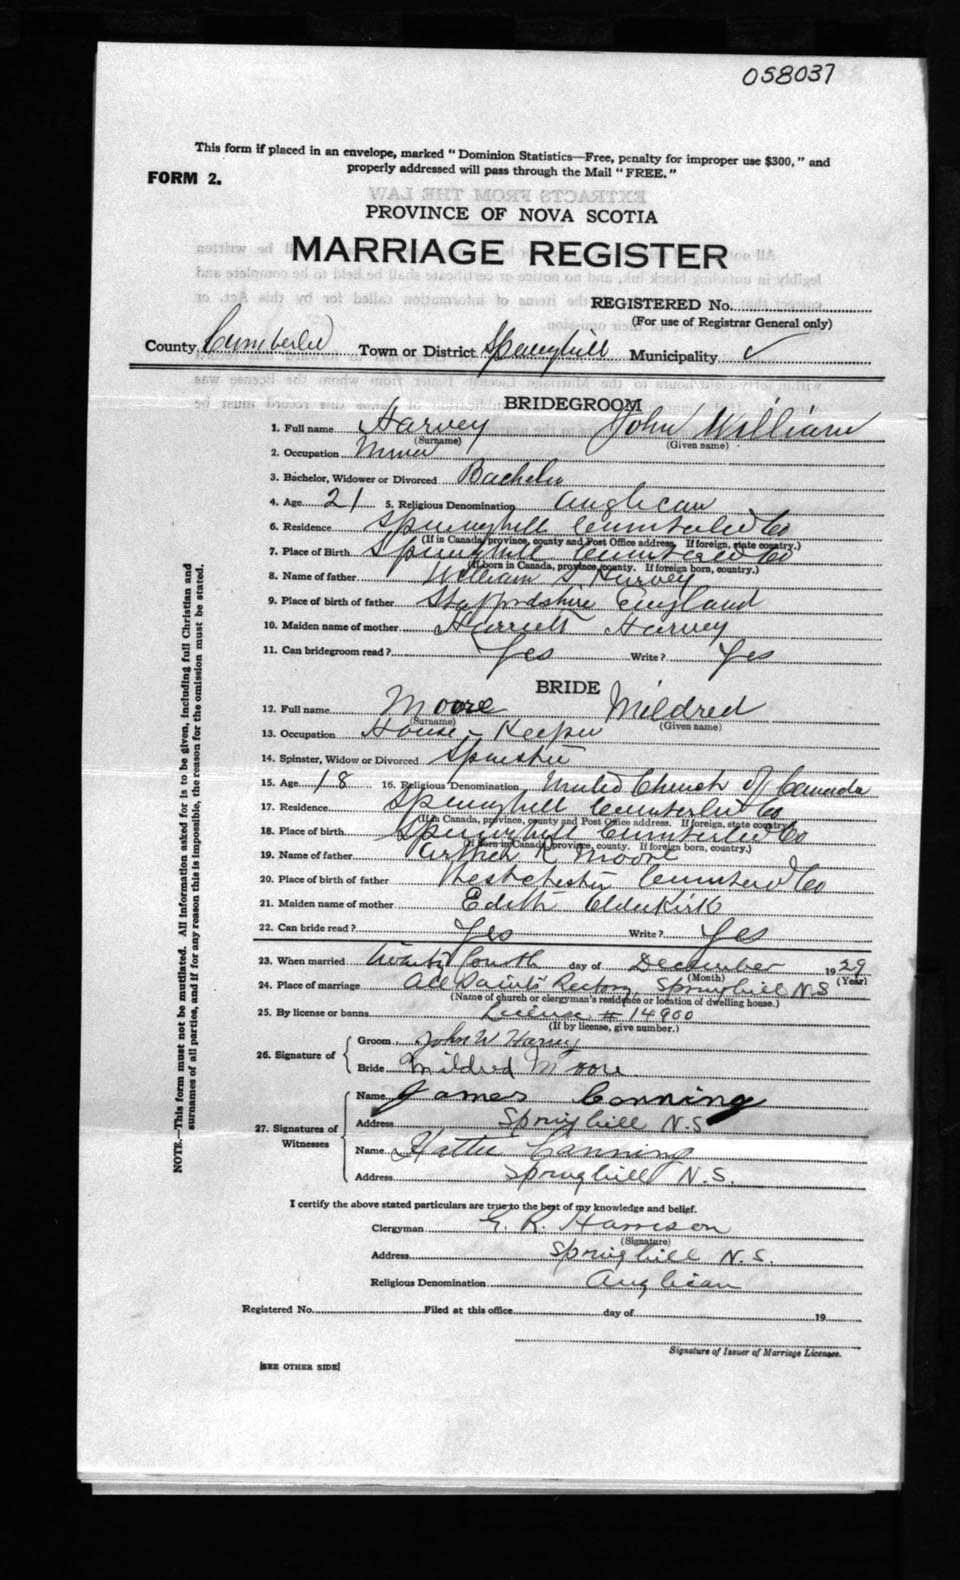 058037
This form if placed in an envelope, marked “Dominion Statistics—Free, penalty for improper use $300,” and
properly addressed will pass through the Mail “FREE.”
FORM 2.
PROVINCE OF NOVA SCOTIA
MARRIAGE REGISTER
REGISTERED No.
(For use of Registrar General only)
County Cumberland Town or District Springhill Municipality ✓
BRIDEGROOM
1. Full name Harvey John William
(Surname) (Given name)
2. Occupation Miner
3. Bachelor, Widower or Divorced Bachelor
4. Age 21 5. Religious Denomination Anglican
6. Residence Springhill Cumberland Co
(If in Canada, province, county and Post Office address. If foreign, state country.)
7. Place of Birth Springhill Cumberland Co
(If born in Canada, province, county. If foreign born, country.)
8. Name of father William S. Harvey
9. Place of birth of father Staffordshire England
10. Maiden name of mother Harriett Harvey
11. Can bridegroom read? Yes Write? Yes
BRIDE
12. Full name Moore Mildred
(Surname) (Given name)
13. Occupation House-Keeper
14. Spinster, Widow or Divorced Spinster
15. Age 18 16. Religious Denomination United Church of Canada
17. Residence Springhill Cumberland Co
(If in Canada, province, county and Post Office address. If foreign, state country.)
18. Place of birth Springhill Cumberland Co
(If born in Canada, province, county. If foreign born, country.)
19. Name of father Arthur R Moore
20. Place of birth of father Westchester Cumberland Co
21. Maiden name of mother Edith Elderkirk
22. Can bride read? Yes Write? Yes
23. When married Twenty fourth day of December 1929
(Month) (Year)
24. Place of marriage All Saints' Rectory, Springhill N.S
(Name of church or clergyman's residence or location of dwelling house.)
25. By license or banns License # 14900
(If by license, give number.)
26. Signature of
Groom John W Harvey
Bride Mildred Moore
27. Signatures of Witnesses
Name James Conning
Address Springhill N.S
Name Hattie Canning
Address Springhill N.S.
I certify the above stated particulars are true to the best of my knowledge and belief.
Clergyman G. R. Harrison
(Signature)
Address Springhill N.S.
Religious Denomination Anglican
Registered No. Filed at this office day of 19
Signature of Issuer of Marriage Licenses.
[SEE OTHER SIDE]
NOTE.—This form must not be mutilated. All information asked for is to be given, including full Christian and
surnames of all parties, and if for any reason this is impossible, the reason for the omission must be stated.